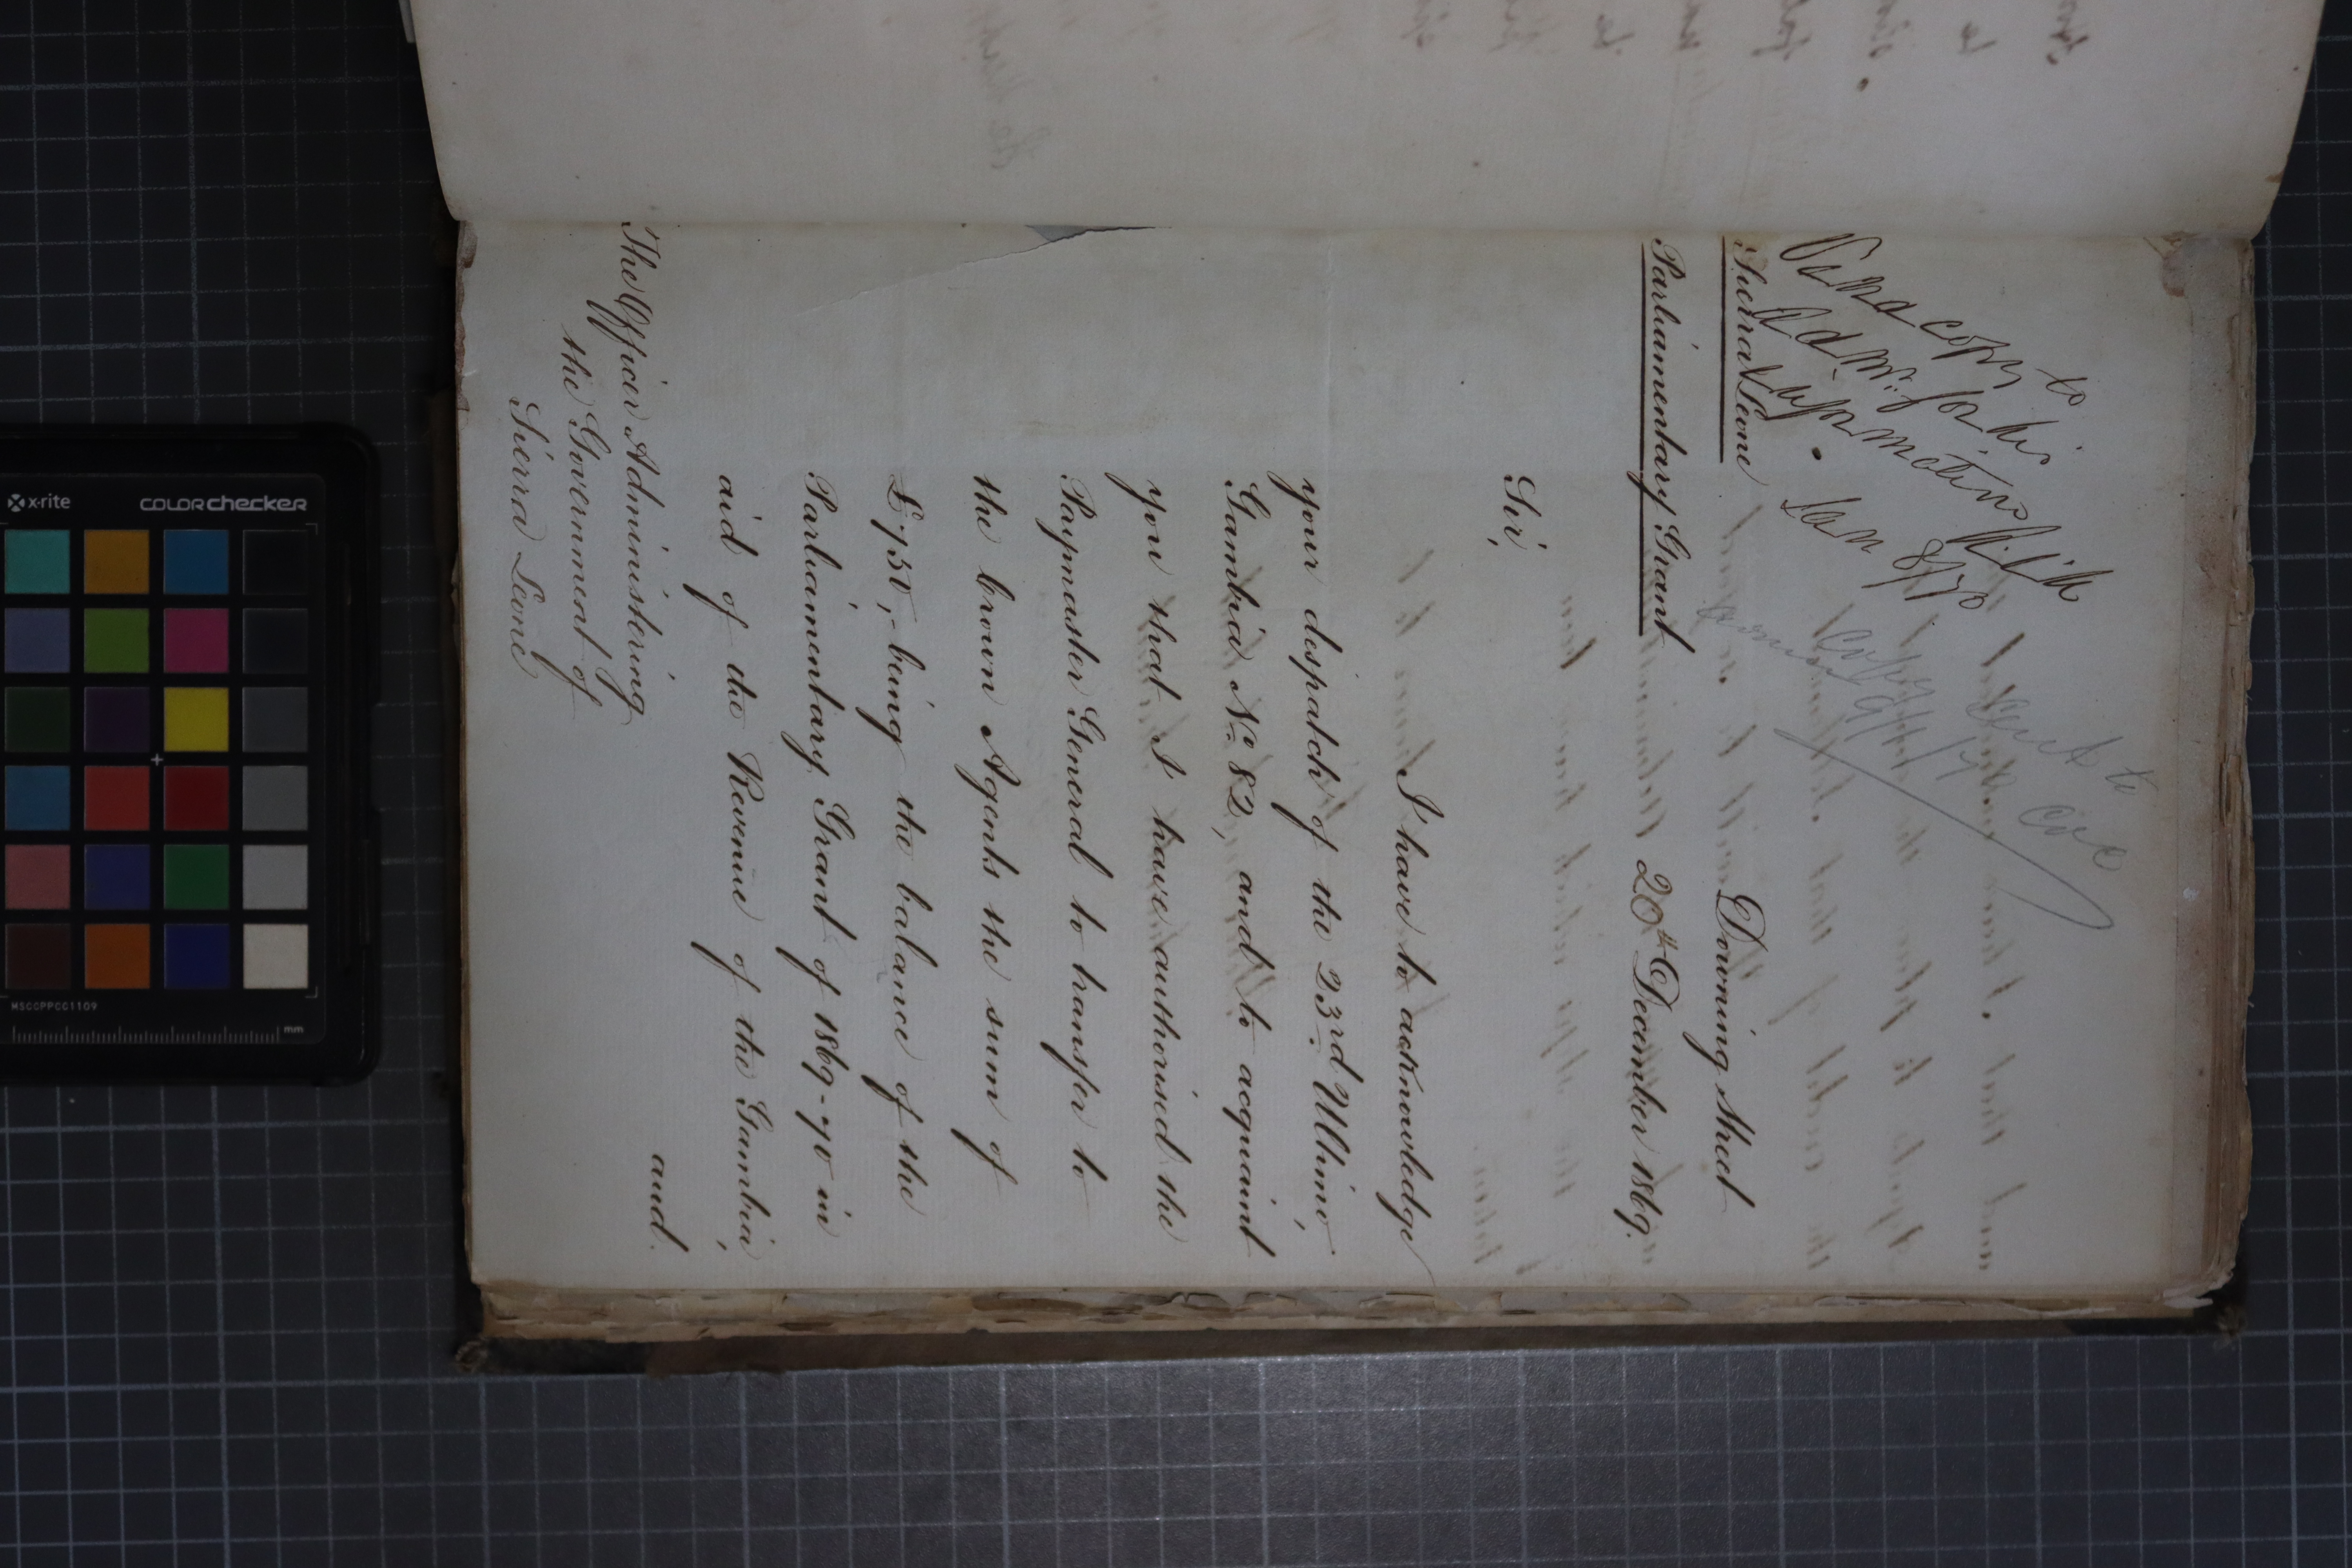 Send copy to
Adm.r for his
information
Jan 8/70
Copy sent to
9/1/70
Sierra Leone
Parliamentary Grant
Downing Street
20th December 1869.
Sir,
I have to acknowledge
your despatch of the 23rd Ultimo,
Gambia No 82, and to acquaint
you that I have authorised the
Paymaster General to transfer to
the Crown Agents the sum of
£750,- being the balance of the
Parliamentary Grant of 1869-70 in
aid of the Revenue of the Gambia,
and.
The Officer Administering
the Government of
Sierra Leone
x·rite
colorchecker
MSCCPPCC1109
mm